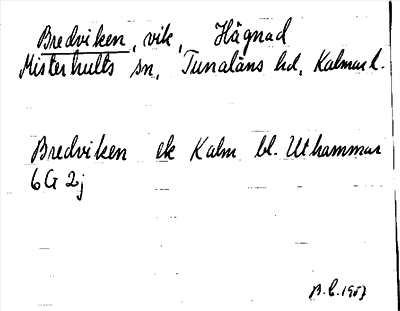 Bredviken, vik, Hägnad
Misterhults sn, Tunaläns hd, Kalmar l.
Bredviken ek Kalm bl. Uthammar
6G 2j
B.C. 1957